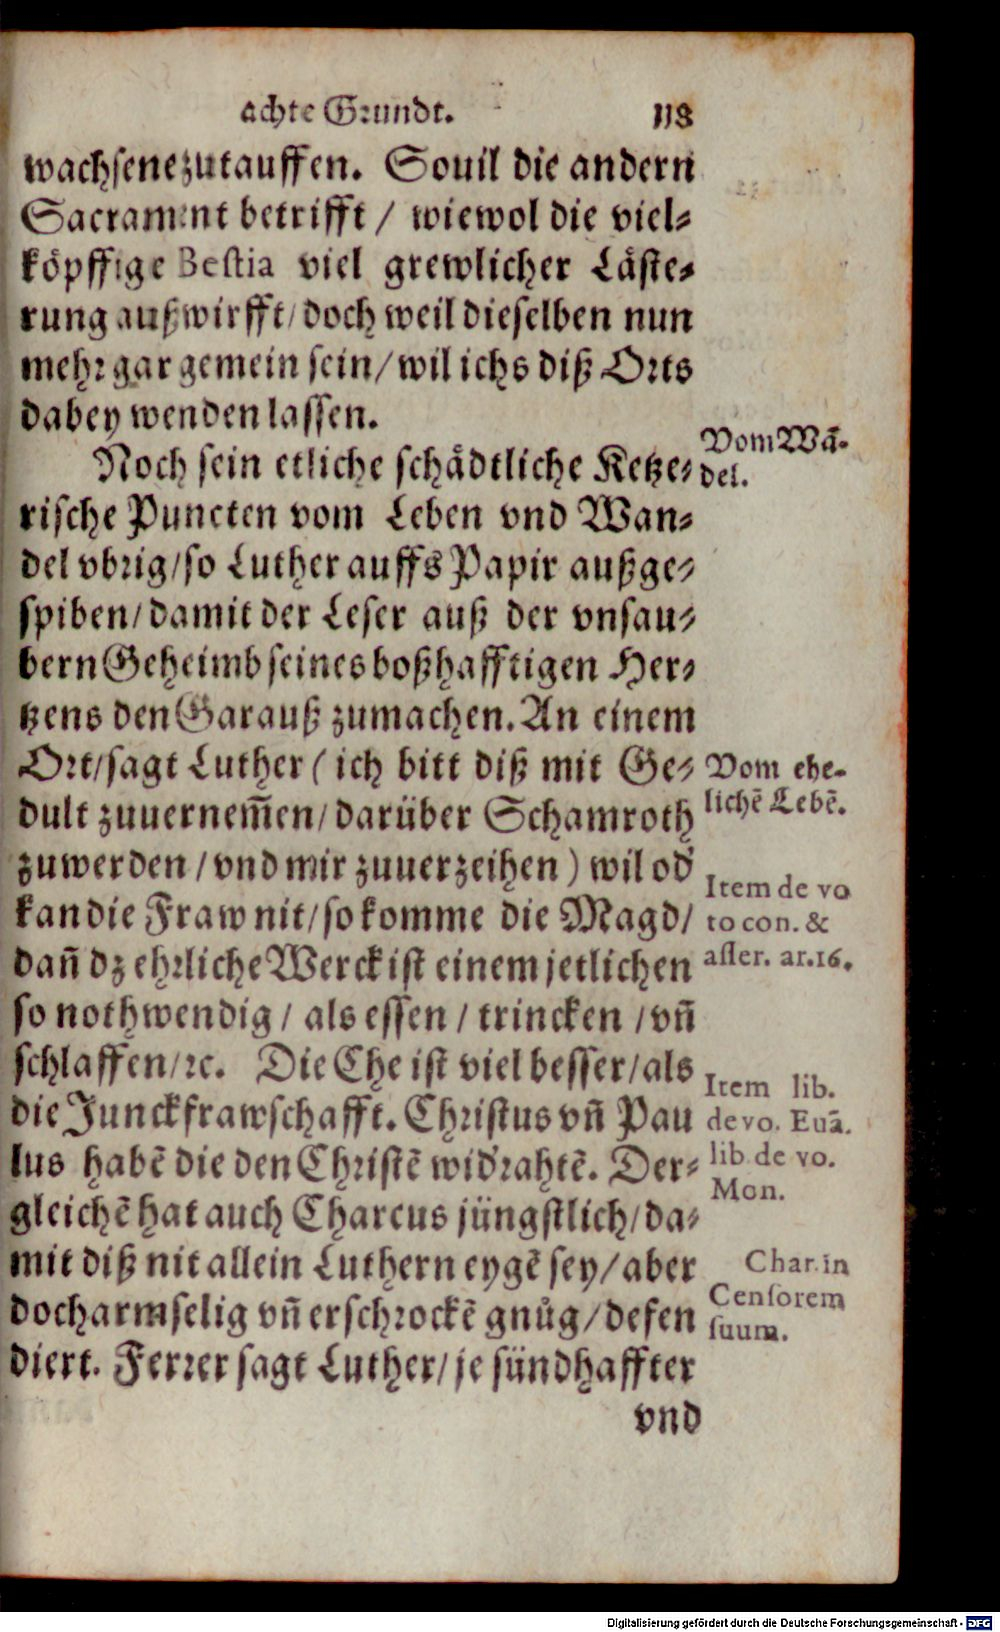 achte Grundt. 118
wachsene zutauffen. Souil die andern
Sacrament betrifft / wiewol die viel-
köpffige Bestia viel grewlicher Läste-
rung außwirfft / doch weil dieselben nun
mehr gar gemein sein / wil ichs diß Orts
dabey wenden lassen.
Vom Wā-
del.
Noch sein etliche schädtliche Ketze-
rische Puncten vom Leben vnd Wan-
del vbrig / so Luther auffs Papir außge-
spiben / damit der Leser auß der vnsau-
bern Geheimb seines boßhafftigen Her-
tzens den Garauß zumachen. An einem
Ort / sagt Luther ( ich bitt diß mit Ge-
dult zuuernem̄en / darüber Schamroth
zuwerden / vnd mir zuuerzeihen ) wil od'
kan die Fraw nit / so komme die Magd /
dañ dz ehrliche Werck ist einem jetlichen
so nothwendig / als essen / trincken / vñ
schlaffen / ꝛc. Die Ehe ist viel besser / als
die Junckfrawschafft. Christus vñ Pau
lus habē die den Christē wid'rahtē. Der-
gleichē hat auch Charcus jüngstlich / da-
mit diß nit allein Luthern eygē sey / aber
doch armselig vñ erschrockē gnůg / defen
diert. Ferrer sagt Luther / je sündhaffter
vnd
Vom ehe-
lichē Lebē.
Item de vo
to con. &
asser. ar. 16.
Item lib.
de vo. Euā.
lib de vo.
Mon.
Char. in
Censorem
suum.
Digitalisierung gefördert durch die Deutsche Forschungsgemeinschaft - DFG